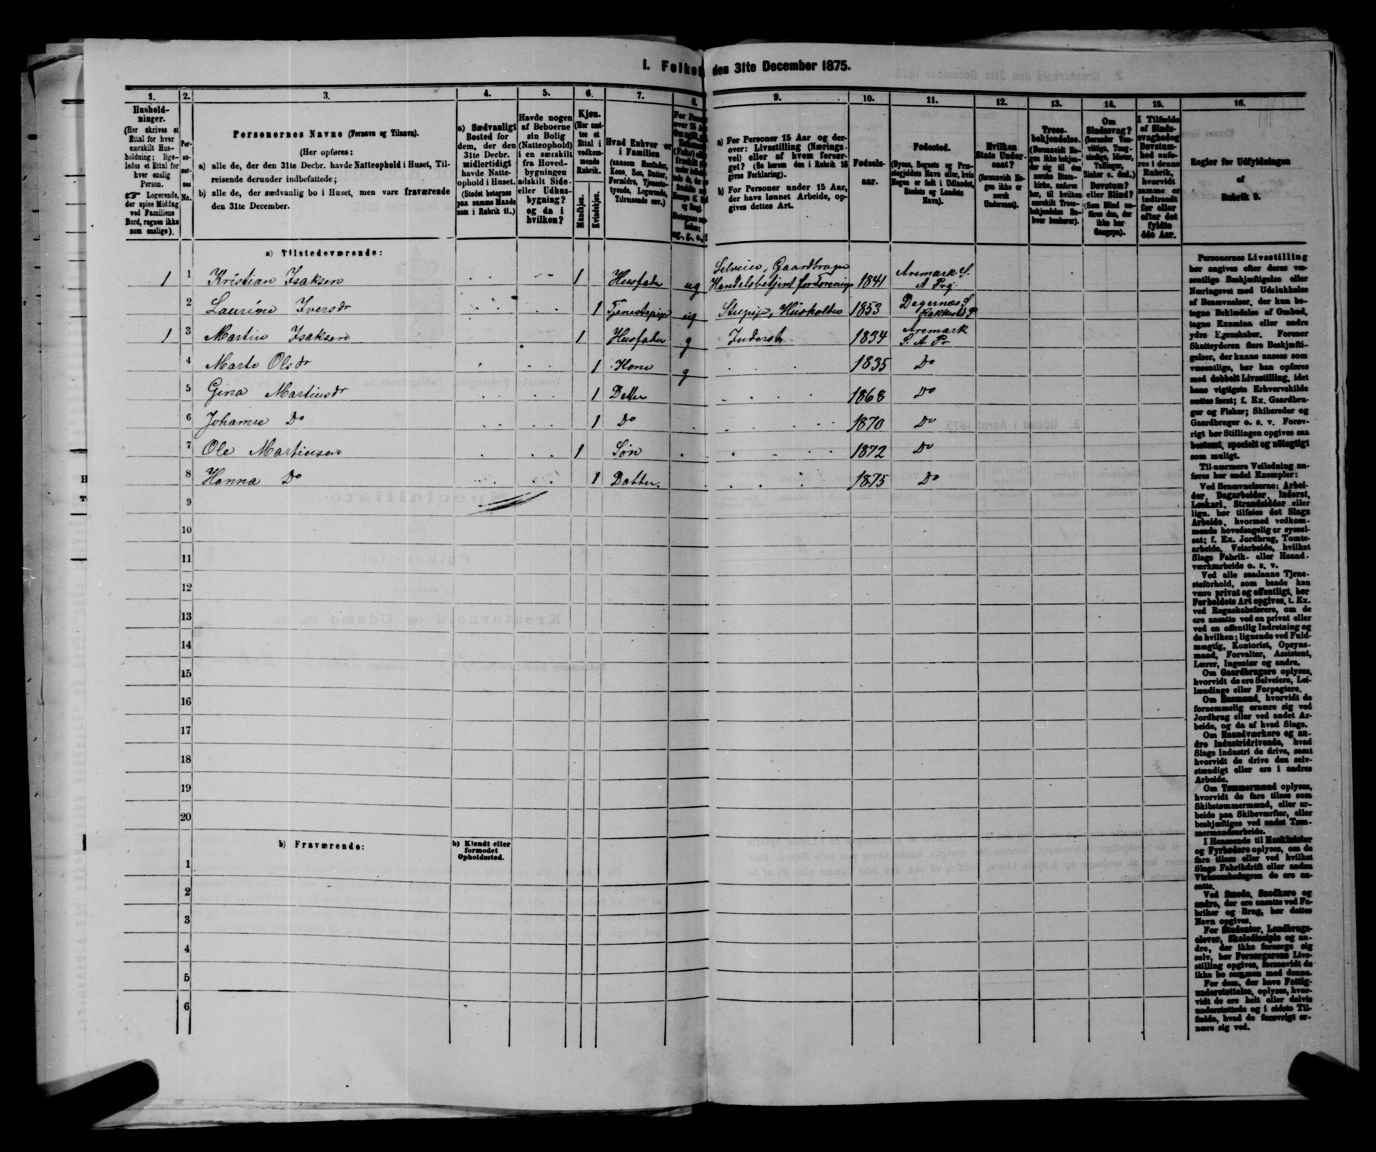 I. Folket
den 31te December 1875.
1.
2.
3.
4.
5.
6.
7.
8.
9.
10.
11.
12.
13.
14.
15.
16.
Hushold-
ninger.
(Her skrives et
Ettal for hver
særskilt Hus-
holdning; lige-
ledes et Ettal for
hver enslig
Person.
Logerende,
der spise Middag
ved Familiens
Bord, regnes ikke
som enslige).
Per-
so-
ner-
nes
No.
Personernes Navne (Fornavn og Tilnavn).
(Her opføres:
a) alle de, der den 31te Decbr. havde Natteophold i Huset, Til-
reisende derunder indbefattede;
b) alle de, der sædvanlig bo i Huset, men vare fraværende
den 31te December.
a) Sædvanligt
Bosted for
dem, der den
31te Decbr.
midlertidigt
havde Natte-
ophold i Huset.
(Stedet betegnes
paa samme Maade
som i Rubrik 11.)
Havde nogen
af Beboerne
sin Bolig
(Natteophold)
i en særskilt
fra Hoved-
bygningen
adskilt Side-
eller Udhus-
bygning?
og da i
hvilken?
Kjøn.
(Her sæt-
tes et
Ettal i
vedkom-
mende
Rubrik.
Mandkjøn.
Kvindekjøn.
Hvad Enhver er
i Familien
(saasom Husfader,
Kone, Søn, Datter,
Forældre, Tjeneste-
tyende, Logerende,
Tilreisende osv.)
a) For Personer 15 Aar og der-
over: Livsstilling (Nærings-
vei) eller af hvem forsør-
get? (Se herom den i Rubrik 16
givne Forklaring).
b) For Personer under 15 Aar,
der have lønnet Arbeide, op-
gives dettes Art.
Fødsels-
aar.
Fødested.
(Byens, Sognets og Præ-
stegjeldets Navn eller, hvis
Nogen er født i Udlandet,
Stedets og Landets
Navn).
Hvilken
Stats Under-
saat?
(forsaavidt No-
gen ikke er
norsk
Undersaat).
Troes-
bekjendelse.
(Forsaavidt No-
gen ikke bekjen-
der sig til den
norske Stats-
kirke, anføres
her, til hvilken
særskilt Troes-
bekjendelse En-
hver henhører).
Om
Sindssvag?
(herunder Van-
vittige, Tung-
sindige, Idioter,
Tullinger,
Sinker o. desl.)
Døvstum?
eller Blind?
(Som Blind an-
føres den, der
ikke har
Gangsyn).
I Tilfælde
af Sinds-
svaghed og
Døvstum-
hed anfø-
res i denne
Rubrik,
hvorvidt
samme er
indtraadt
før eller
efter det
fyldte
4de Aar.
Regler for Udfyldningen
af
Rubrik 9.
a) Tilstedeværende:
1 1 Kristian Isaksen 1 Husfader ug Selveier, Gaardbruger
Handelsbetjent forretning 1841 Aremark S.
A Prg
2 Laurine Iversdr 1 Tjenestepige ug Husholder 1853
1 3 Martin Isaksen 1 Husfader g Inderst 1834 Aremark
S. A Pr
4 Marte Olsdr 1 Kone g 1835 Do
5 Gina Martinsdr 1 Datter 1868 Do
6 Johanne Do 1 Do 1870 Do
7 Ole Martinsen 1 Søn 1872 Do
8 Hanna Do 1 Datter 1875 Do
9
10
11
12
13
14
15
16
17
18
19
20
b) Fraværende:
b) Kjendt eller
formodet
Opholdssted.
1
2
3
4
5
6
Personernes Livsstilling
bør angives efter deres væ-
sentlige Beskjæftigelse eller
Næringsvei med Udelukkelse
af Benævnelser, der kun be-
tegne Beklædelse af Ombud,
tagne Examina eller andre
ydre Egenskaber. Forener
Skatteyderen flere Beskjæfti-
gelser, der kunne ansees som
væsentlige, bør han opføres
med dobbelt Livsstilling, idet
hans vigtigste Erhvervskilde
sættes først; f. Ex. Gaardbru-
ger og Fisker; Skibsreder og
Gaardbruger o. s. v. Forøv-
rigt bør Stillingen opgives saa
bestemt, specielt og nøiagtigt
som muligt.
Til nærmere Veiledning an-
føres her endel Exempler:
Ved Benævnelserne: Arbei-
der, Dagarbeider, Inderst,
Løskarl, Strandsidder eller
lign. bør tilføies det Slags
Arbeide, hvormed vedkom-
mende hovedsagelig er syssel-
sat; f. Ex. Jordbrug, Tomte-
arbeide, Veiarbeide, hvilket
Slags Fabrik- eller Haand-
værksarbeide o. s. v.
Ved alle saadanne Tjene-
steforhold, som baade kan
være privat og offentligt, bør
Forholdets Art opgives, t. Ex.
ved Regnskabsførere, om de
ere ansatte ved en privat eller
ved en offentlig Indretning og
da hvilken; lignende ved Fuld-
mægtig, Kontorist, Opsyns-
mand, Forvalter, Assistent,
Lærer, Ingeniør og andre.
Om Gaardbrugere oplyses,
hvorvidt de ere Selveiere, Lei-
lændinge eller Forpagtere.
Om Husmænd, hvorvidt de
fornemmelig ernære sig ved
Jordbrug eller ved andet Ar-
beide, og da af hvad Slags.
Om Haandværkere og an-
dre Industridrivende, hvad
Slags Industri de drive, samt
hvorvidt de drive den selv-
stændigt eller ere i andres
Arbeide.
Om Tømmermænd oplyses,
hvorvidt de fare tilsøs som
Skibstømmermænd, eller ar-
beide paa Skibsværfter, eller
beskjæftiges ved andet Tøm-
mermandsarbeide.
I Henseende til Maskinister
og Fyrbødere oplyses, om de
fare tilsøs eller ved hvilket
Slags Fabrikdrift eller anden
Virksomhedsgren de ere an-
satte.
Ved Smede, Snedkere og
andre, der ere ansatte ved Fa-
briker og Brug, bør dettes
Navn opgives.
For Studenter, Landbrugs-
elever, Skoledisciple og an-
dre, der ikke forsørge sig
selv, bør Forsørgerens Livs-
stilling opgives, forsaavidt de
ikke bo sammen med denne.
For dem, der have Fattig-
understøttelse, oplyses, hvor-
vidt de ere helt eller delvis
understøttede og i sidste Til-
fælde, hvad de forøvrigt er-
nære sig ved.